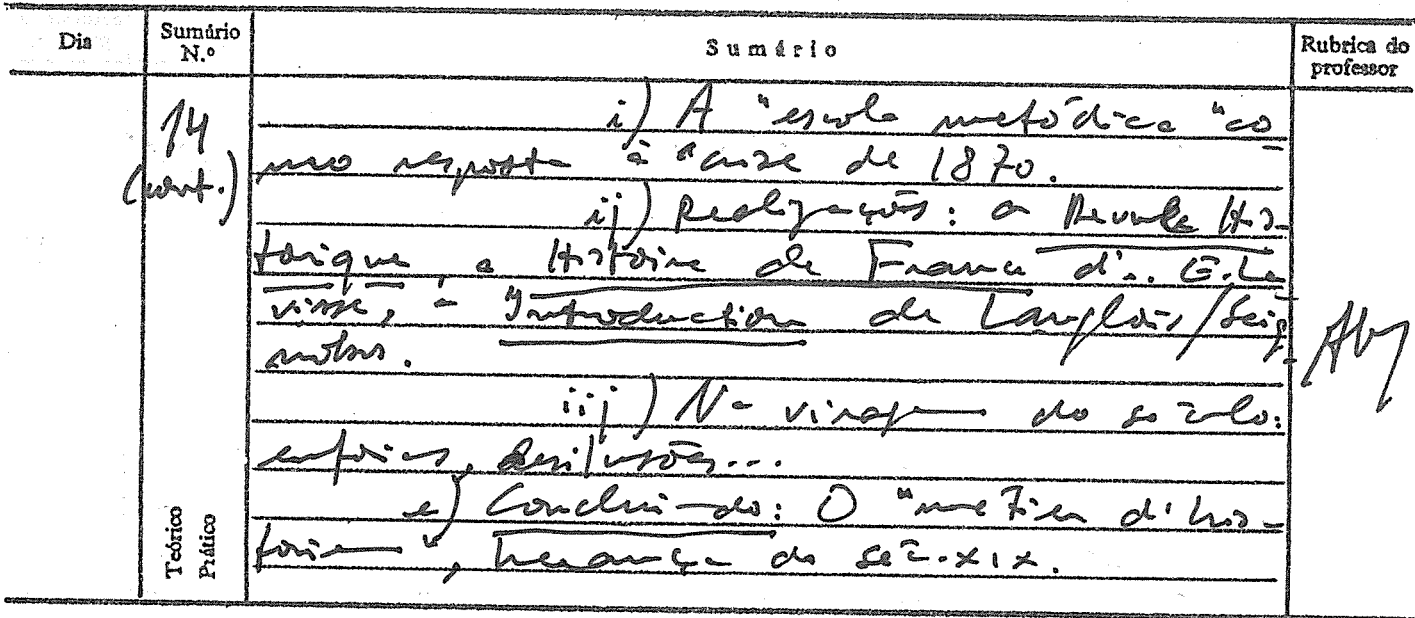 Dia Sumário N.º Sumário Rubrica do professor
14 (cont.)
i) A "escola metódica" co-
mo resposta à "crise de 1870.
ij) Realizações: a Revue His-
torique, a Histoire de France d'.. E. La
visse, a "Introduction de Langlois/Seig-
nobos.
iij) Na viragem do século:
euforias, desilusões...
e) Concluindo: O "métier d'his-
torien", herança do séc. XIX.
Teórico
Prático